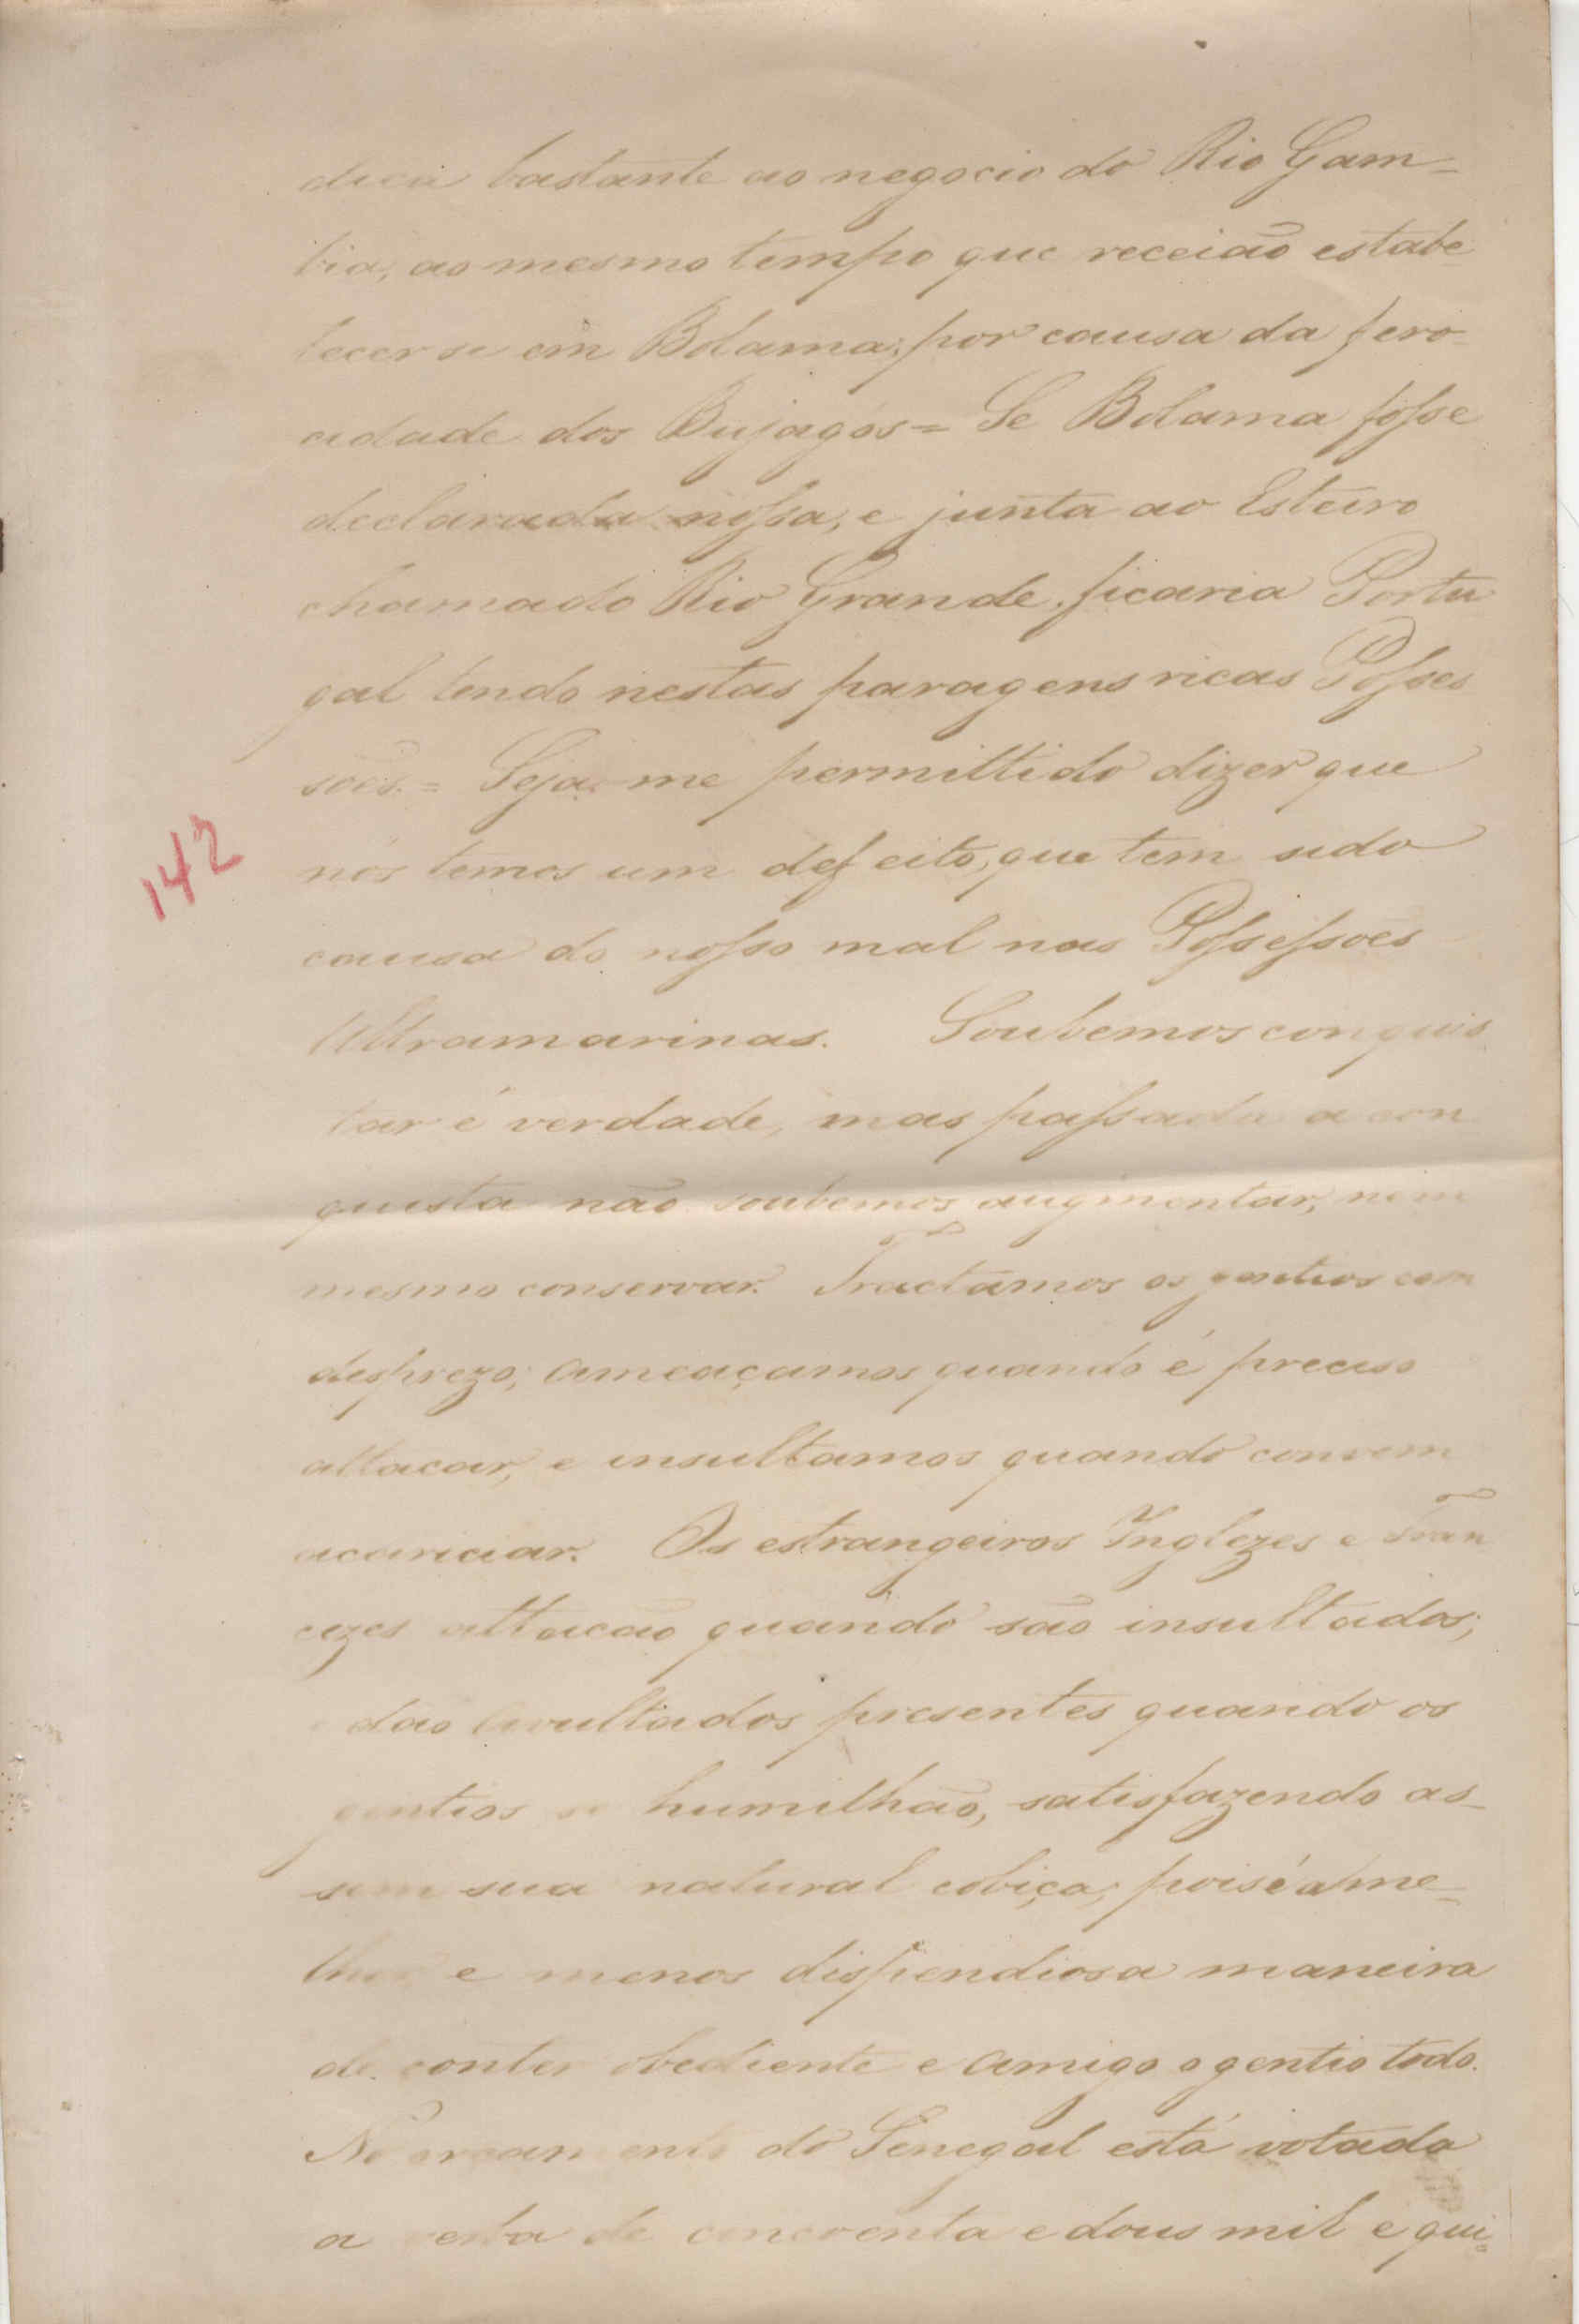 dica bastante ao negocio do Rio Gam=
bia, ao mesmo tempo que receião estabe
lecer se em Bolama, por causa da fero
cidade dos Bujagós = Se Bolama fosse
declarada nossa, e junta ao Esteiro
chamado Rio Grande, ficaria Portu
gal tendo nestas paragens ricas Posses
sões. = Seja-me permittido dizer que
nós temos um defeito, que tem sido
causa do nosso mal nas Possessões
Ultramarinas. Soubemos conquis
tar é verdade, mas passada a con
quista não soubemos augmentar, nem
mesmo conservar. Tractamos os gentios com
desprezo; ameaçamos quando é preciso
attacar, e insultamos quando convem
acariciar. Os estrangeiros Inglezes e Fran
cezes attacão quando são insultados;
e dão avultados presentes quando os
gentios se humilhão, satisfazendo as_
sim sua natural cobiça; pois é a me=
lhor e menos dispendiosa maneira
de conter obediente e amigo o gentio todo.
No orcamento do Senegal está votada
a verba de cincoenta e dous mil e qui=
142